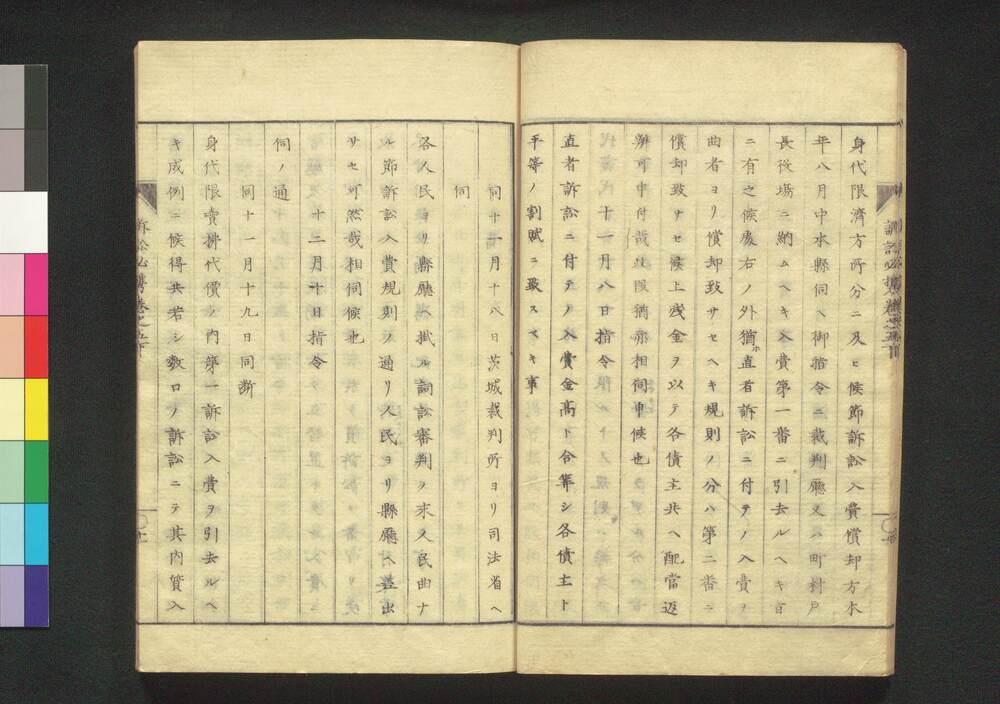 身代限濟方所分ニ及ヒ候節訴訟入費償却方本
年八月中水縣伺ヘ御指令ニ裁判廳又ハ町村戸
長役場ニ納ムヘキ入費第一番ニ引去ルヘキ旨
ニ有之候處右ノ外猶直者訴訟ニ付テノ入費ヲ
曲者ヨリ償却致サセヘキ規則ノ分ハ第二番ニ
償却致サセ候上残金ヲ以テ各債主共ヘ配當返
辨可申付哉此段猶亦相伺申候也
十一月八日指令
直者訴訟ニ付テノ入費金高ト合筭シ各債主ト
平等ノ割賦ニ致スヘキ事
同十一月十八日茨城裁判所ヨリ司法省ヘ
伺
各人民ヨリ縣廳ヘ掛ル詞訟審判ヲ求メ人民曲ナ
ル節訴訟入費規則ノ通リ人民ヨリ縣廳ヘ差出
サセ可然哉相伺候也
十二月二十日指令
伺ノ通
同十一月十九日同斷
身代限賣拂代價ノ内第一訴訟入費ヲ引去ルヘ
キ成例ニ候得共若シ數口ノ訴訟ニテ其内質入
訴訟必携巻之五下